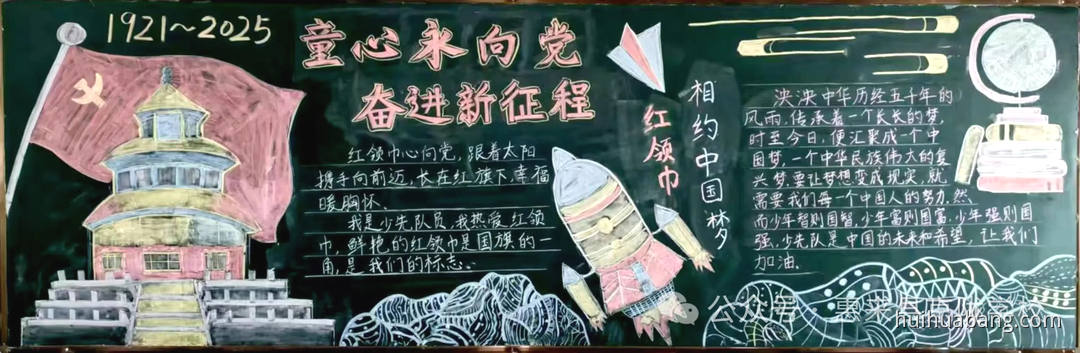 1921~2025
童心永向党
奋进新征程
红领巾心向党,跟着太阳
携手向前迈,长在红旗下,幸福
暖胸怀.
我是少先队员,我热爱红领
巾,鲜艳的红领巾是国旗的一
角,是我们的标志.
红领巾
相约中国梦
泱泱中华历经五千年的
风雨,传承着一个长长的梦,
时至今日,便汇聚成一个中
国梦,一个中华民族伟大的复
兴梦.要让梦想变成现实,就
需要我们每一个中国人的努力.然
而少年智则国智,少年富则国富,少年强则国
强.少先队是中国的未来和希望,让我们
加油.
公众号
huihuabang.com